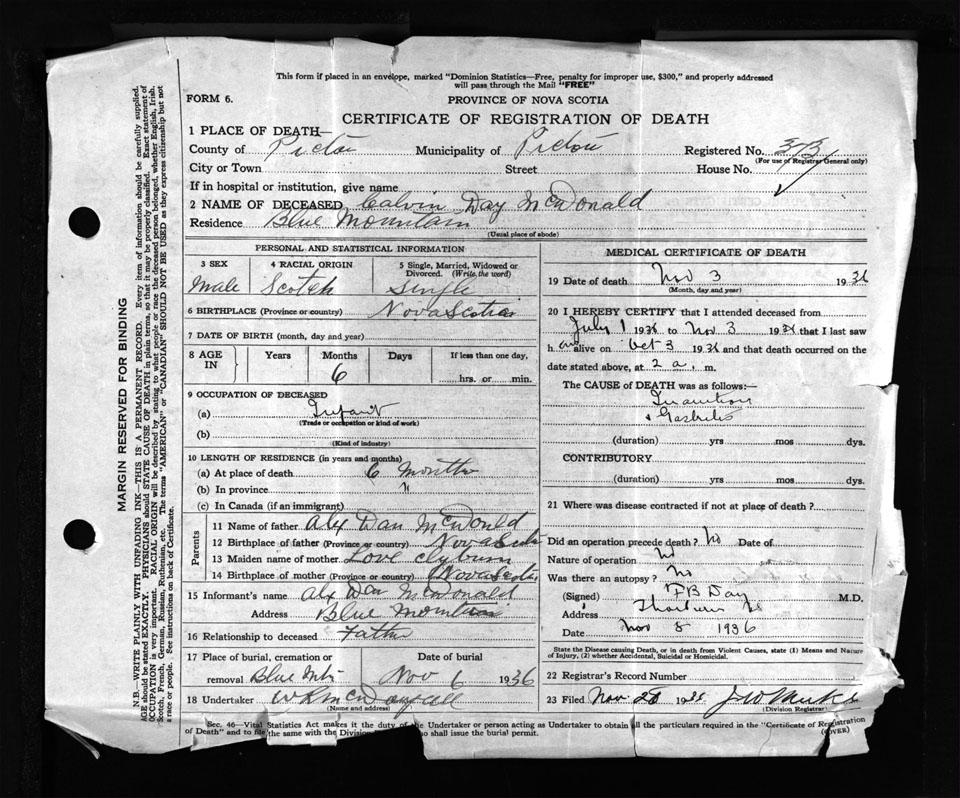 This form if placed in an envelope, marked "Dominion Statistics—Free, penalty for improper use, $300," and properly addressed
will pass through the Mail "FREE"
FORM 6.
PROVINCE OF NOVA SCOTIA
CERTIFICATE OF REGISTRATION OF DEATH
1 PLACE OF DEATH—
County of Pictou Municipality of Pictou Registered No.
(For use of Registrar General only)
City or Town Street House No.
If in hospital or institution, give name
2 NAME OF DECEASED Calvin Day McDonald
Residence Blue Mountain
(Usual place of abode)
MARGIN RESERVED FOR BINDING
N.B.—WRITE PLAINLY WITH UNFADING INK—THIS IS A PERMANENT RECORD. Every item of information should be carefully supplied.
AGE should be stated EXACTLY. PHYSICIANS should STATE CAUSE OF DEATH in plain terms, so that it may be properly classified. Exact statement of
OCCUPATION is very important. RACIAL ORIGIN will be described by stating to what people or race the deceased person belonged, whether English, Irish,
Scotch, French, German, Russian, Ruthenian, etc. The terms "AMERICAN" or "CANADIAN" SHOULD NOT BE USED as they express citizenship but not
a race or people. See instructions on back of Certificate.
PERSONAL AND STATISTICAL INFORMATION
3 SEX 4 RACIAL ORIGIN 5 Single, Married, Widowed or
Divorced. (Write the word)
Male Scotch Single
6 BIRTHPLACE (Province or country) Nova Scotia
7 DATE OF BIRTH (month, day and year)
8 AGE IN Years Months Days If less than one day,
6 hrs. or min.
9 OCCUPATION OF DECEASED
(a) Infant
(Trade or occupation or kind of work)
(b)
(Kind of industry)
10 LENGTH OF RESIDENCE (in years and months)
(a) At place of death 6 months
(b) In province "
(c) In Canada (if an immigrant)
Parents
11 Name of father Alex Dan McDonald
12 Birthplace of father (Province or country) Nova Scotia
13 Maiden name of mother Love Clyburn
14 Birthplace of mother (Province or country) Nova Scotia
15 Informant's name Alex Dan McDonald
Address Blue Mountain
16 Relationship to deceased Father
17 Place of burial, cremation or Date of burial
removal Blue Mtn Nov 6 1936
18 Undertaker W R McDougall
(Name and address)
MEDICAL CERTIFICATE OF DEATH
19 Date of death Nov 3 1936
(Month, day and year)
20 I HEREBY CERTIFY that I attended deceased from
July 1 1936 to Nov 3 1936 that I last saw
h im alive on Oct 3 1936 and that death occurred on the
date stated above, at 2 a. m.
The CAUSE of DEATH was as follows:—
Inanition
+ Gastritis
(duration) yrs mos dys.
CONTRIBUTORY
(duration) yrs mos dys.
21 Where was disease contracted if not at place of death?
Did an operation precede death? No Date of
Nature of operation No
Was there an autopsy? No
(Signed) P B Day M.D.
Address Thorburn NS
Date Nov 5 1936
State the Disease causing Death, or in death from Violent Causes, state (1) Means and Nature
of Injury, (2) whether Accidental, Suicidal or Homicidal.
22 Registrar's Record Number
23 Filed Nov 20 1936
(Division Registrar)
Sec. 46—Vital Statistics Act makes it the duty of the Undertaker or person acting as Undertaker to obtain all the particulars required in the "Certificate of Registration
of Death" and to file the same with the Division shall issue the burial permit.
(OVER)